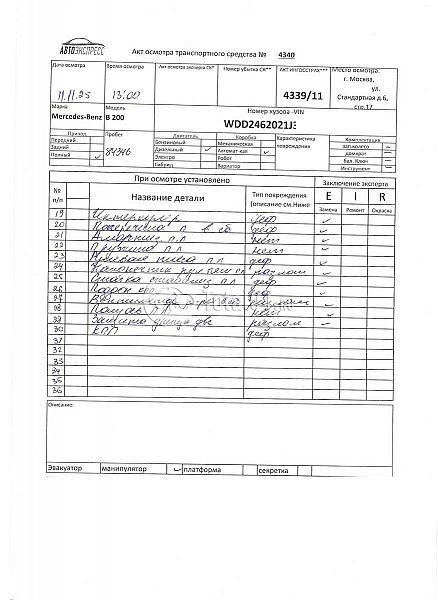 АВТОЭКСПРЕСС
Акт осмотра транспортного средства № 4340
Дата осмотра Время осмотра Акт осмотра эксперта СК* Номер убытка СК** АКТ ИНГОССТРАХ*** Место осмотра:
г. Москва,
ул.
Стандартная д.6,
стр.17
11.11.25 13:00 4339/11
Марка Модель Номер кузова -VIN
Mercedes-Benz B 200 WDD2462021J
Привод Пробег Двигатель Коробка Характеристики повреждения Комплектация
Передний Бензиновый Механическая зап.колесо
Задний 84346 Дизельный Автомат-кая домкрат
Полный Электро Робот бал. Ключ
Гибрид Вариатор Инструмент
При осмотре установлено Заключение эксперта
№ п/п Название детали Тип повреждения (описание см.Ниже E I R
Замена Ремонт Окраска
19 Интеркулер деф
20 Поперечина п. деф
21 Аморт п.л нет
22 Пружина п.л нет
23 п.л деф
24 Наконечник разлом
25 п.л деф
26 Поддон кпп деф
27
28 п.л нет
29 Защита разлом
30 КПП деф
31
32
33
34
35
36
Описание:
Эвакуатор манипулятор платформа секретка